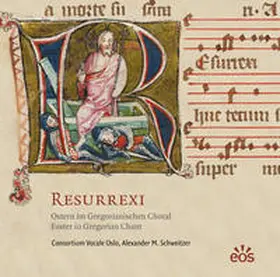 a morte su
n. A
Esurrexi
huc tecum s
super me
RESURREXI
Ostern im Gregorianischen Choral
Easter in Gregorian Chant
Consortium Vocale Oslo, Alexander M. Schweitzer
eos